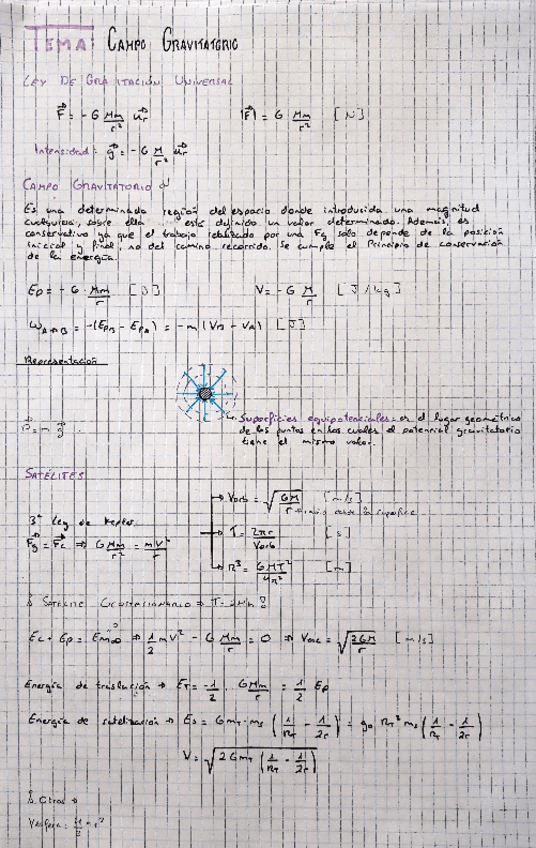 TEMA: CAMPO GRAVITATORIO
LEY DE GRAVITACIÓN UNIVERSAL
F⃗ = -G Mm/r² u⃗r |F⃗| = G Mm/r² [N]
Intensidad: g⃗ = -G M/r² u⃗r
CAMPO GRAVITATORIO
Es una determinada región del espacio donde introducida una magnitud
cualquiera, sobre ella está definido un valor determinado. Además, es
conservativo ya que el trabajo realizado por una Fg solo depende de la posición
inicial y final, no del camino recorrido. Se cumple el Principio de conservación
de la energía.
Ep = -G · Mm/r [J] V = -G M/r [J/kg]
WA→B = -(EpB - EpA) = -m(VB - VA) [J]
Representación
Superficies equipotenciales = es el lugar geométrico
de los puntos en los cuales el potencial gravitatorio
tiene el mismo valor.
P⃗ = m g⃗
SATÉLITES
→ Vorb = √(GM/r) [m/s]
3ª Ley de Kepler
F⃗g = F⃗c ⇒ G Mm/r² = mv²/r
→ T = 2πr/Vorb [s]
→ R³ = GMT²/4π² [m]
Ec + Ep = Em∞ ⇒ 1/2 mv² - G Mm/r = 0 ⇒ Vesc = √(2GM/r) [m/s]
Energía de traslación → ET = -1/2 · GMm/r = 1/2 Ep
Energía de satelización → Es = G mT · ms (1/RT - 1/2r) = g0 RT² ms (1/RT - 1/2r)
V = √(2GmT (1/RT - 1/2r))
Otros →